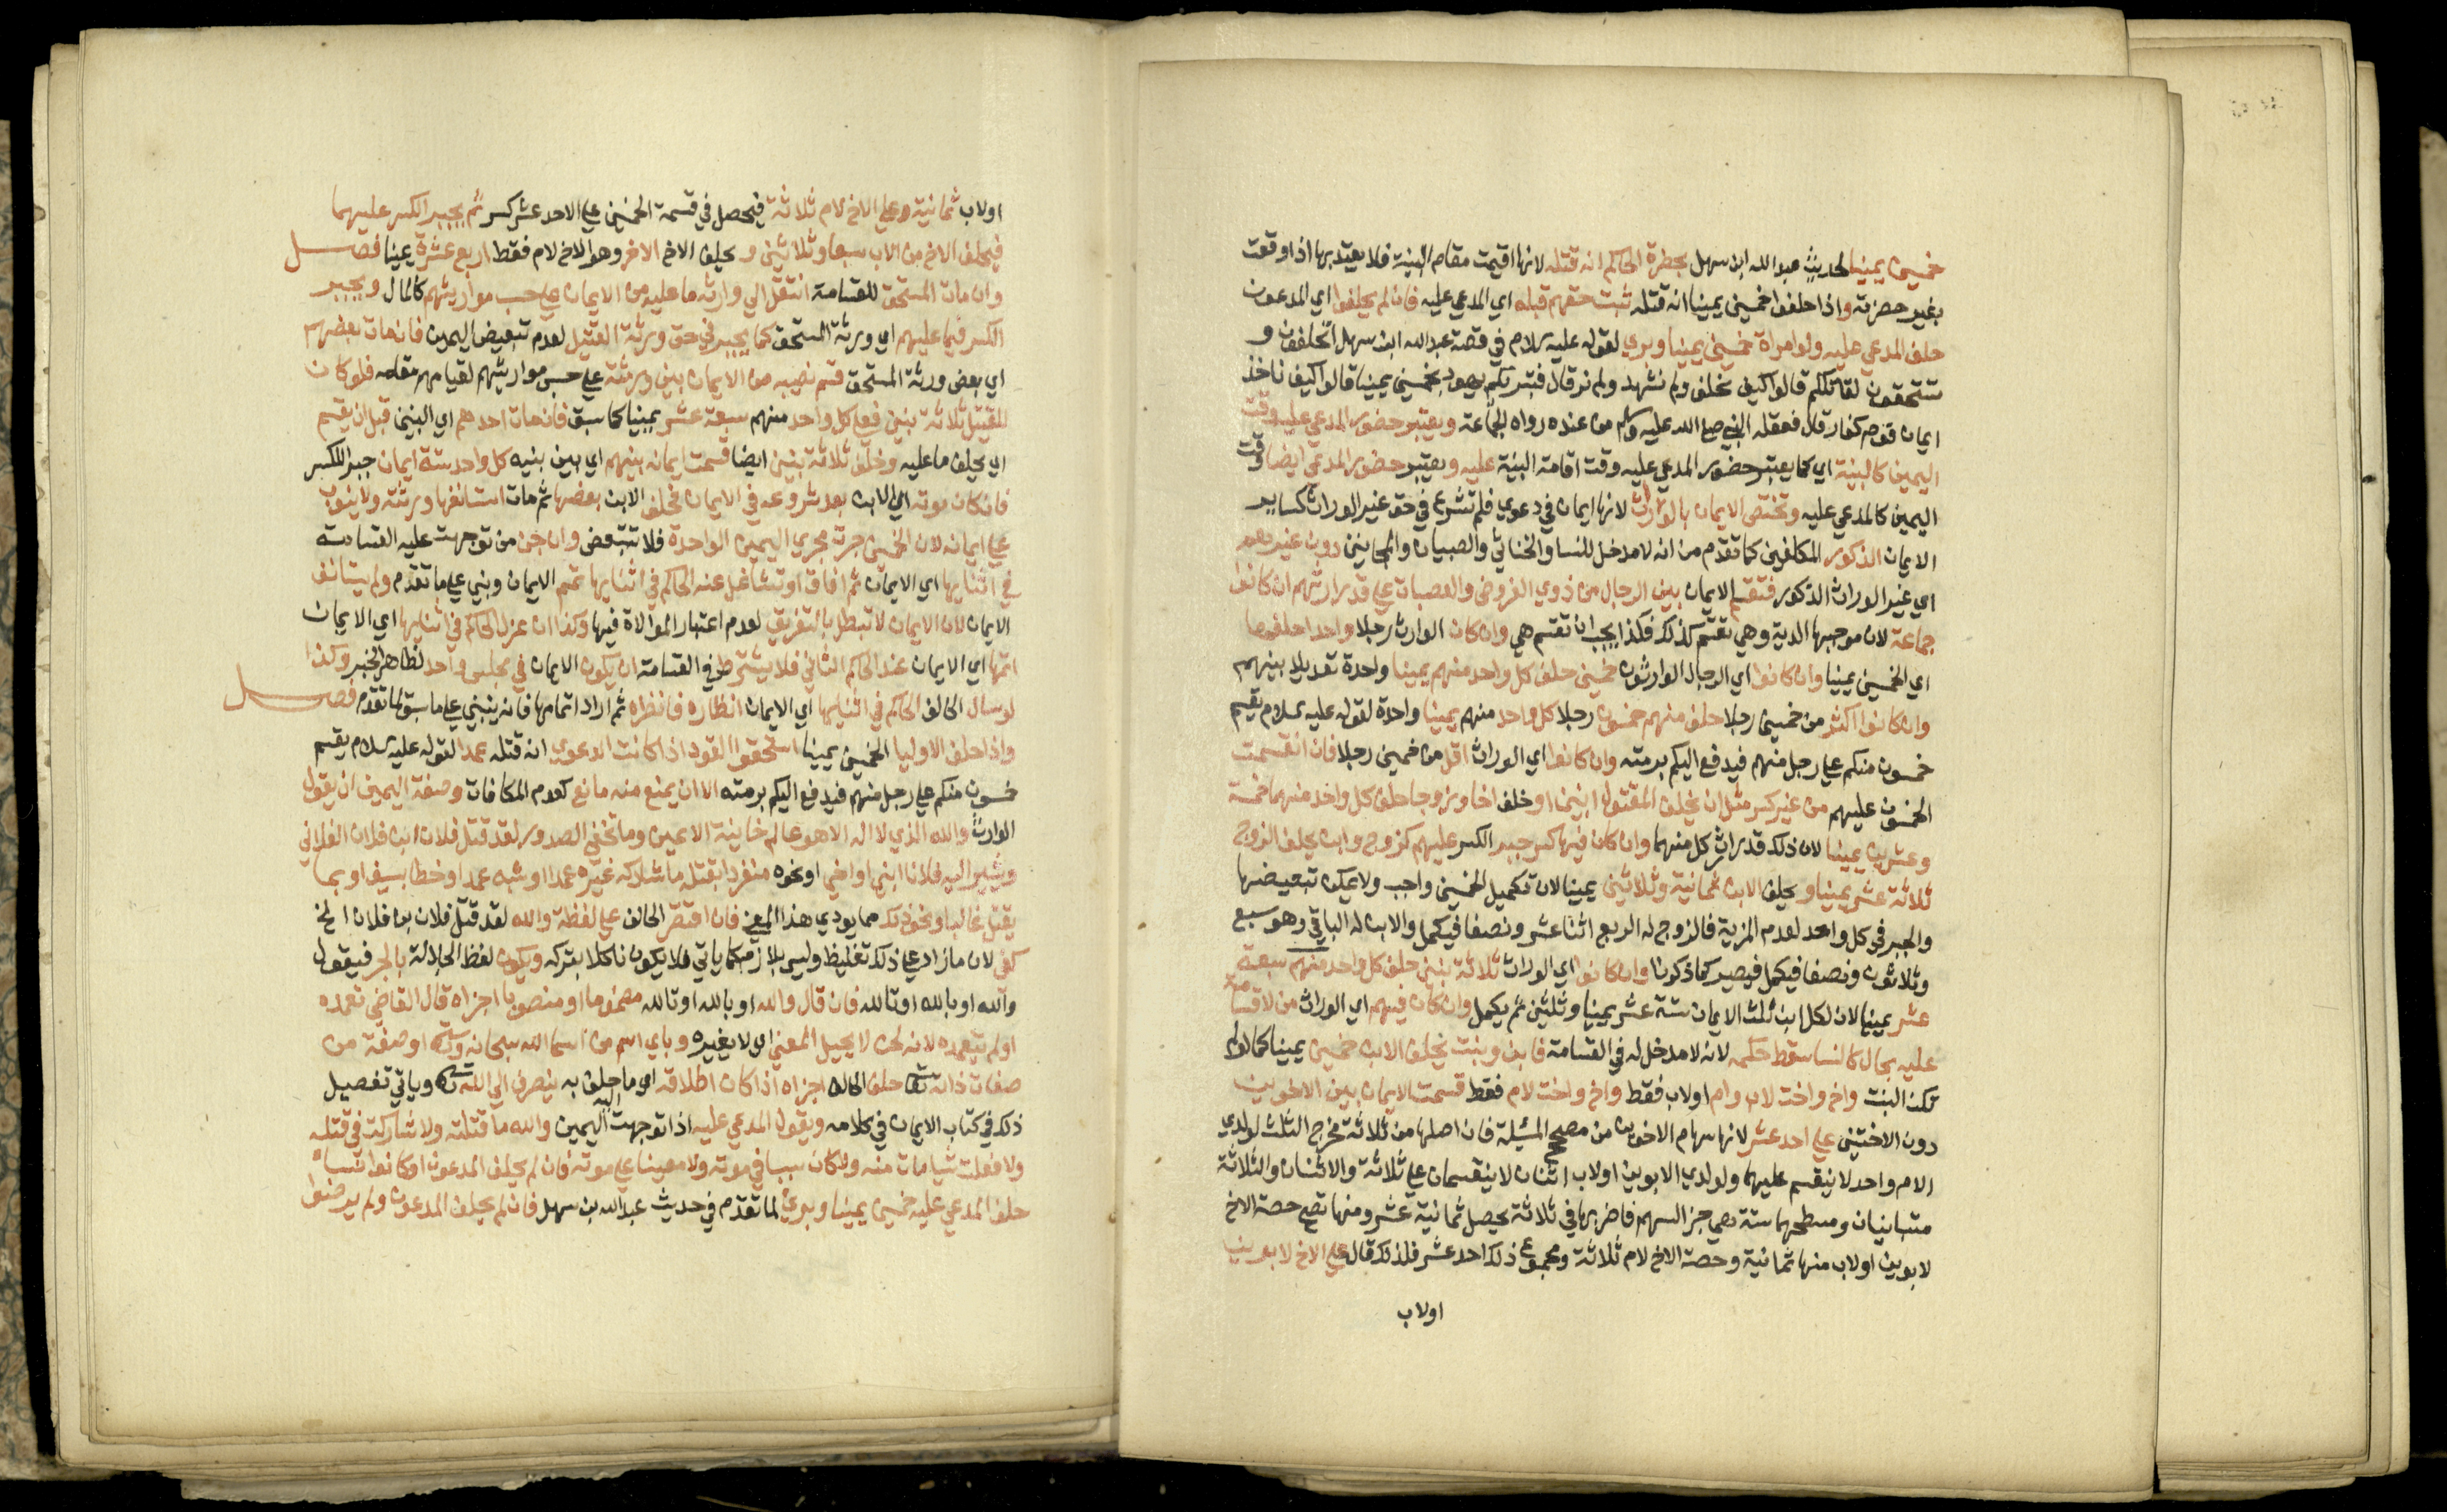 خمسين يمينا لحديث عبد الله ابن سهل بحضرة الحاكم انه قتله لانها اقيمت مقام البينة فلا يعتد بها اذا وقعت
بغير حضرته واذا حلفوا خمسين يمينا انه قتله ثبت حقهم قبله اي المدعي عليه فان لم يحلفوا اي المدعون
حلف المدعي عليه ولو امراة خمسين يمينا وبري لقوله عليه السلام في قصة عبد الله ابن سهل اتحلفون و
تستحقون لقاتلكم قالوا كيف نحلف ولم نشهد ولم نر قال فتبريكم يهود بخمسين يمينا قالوا كيف ناخذ
ايمان قوم كفار قال فعقله النبي صلى الله عليه وسلم من عنده رواه الجماعة ويعتبر حضور المدعي عليه وقت
اليمين كالبينة اي كما يعتبر حضور المدعي عليه وقت اقامة البينة عليه ويعتبر حضور المدعي ايضا وقت
اليمين كالمدعي عليه وتختص الايمان بالوراث لانها ايمان في دعوي فلم تشرع في حق غير الوراث كساير
الايمان الذكور المكلفين كما تقدم من انه لا مدخل للنسا والخناثي والصبيان والمجانين دون غيرهم
اي غير الوراث الذكور فتقسم الايمان بين الرجال من ذوي الفروض والعصبات علي قدر ارثهم ان كانوا
جماعة لان موجبها الدية وهي تقسم كذلك فكذا يجب ان تقسم هي وان كان الوارث رجلا واحدا حلفها
اي الخمسين يمينا وان كانوا اي الرجال الوارثون خمسين حلف كل واحد منهم يمينا واحدة تعديلا بينهم
وان كانوا اكثر من خمسين رجلا حلف منهم خمسون رجلا كل واحد منهم يمينا واحدة لقوله عليه السلام يقسم
خمسون منكم علي رجل منهم فيدفع اليكم برمته وان كانوا اي الوراث اقل من خمسين رجلا فان انقسمت
الخمسون عليهم من غير كسر مثل ان يخلف المقتول ابنين او خلف اخا وزوجا حلف كل واحد منهما خمسة
وعشرين يمينا لان ذلك قدر ارث كل منهما وان كان فيها كسر جبر الكسر عليهم كزوج وابن يحلف الزوج
ثلاثة عشر يمينا ويحلف الابن ثمانية وثلاثين يمينا لان تكميل الخمسين واجب ولا يمكن تبعيضها
والجبر في كل واحد لعدم المزية فالزوج له الربع اثنا عشر ونصفا فيكمل والابن له الباقي وهو سبع
وثلاثون ونصفا فيكمل فيصير كما ذكرنا وان كانوا اي الوراث ثلاثة بنين حلف كل واحد منهم سبعة
عشر يمينا لان لكل ابن ثلث الايمان ستة عشر يمينا وثلثين ثم يكمل وان كان فيهم اي الوراث من لا قسامة
عليه بحال كالنسا سقط حكمه لانه لا مدخل له في القسامة فابن وبنت يحلف الابن خمسين يمينا كما لو لم
تكن البنت واخ واخت لاب وام او لاب فقط واخ واخت لام فقط قسمت الايمان بين الاخوين
دون الاختين علي احد عشر لانها سهام الاخوين من مصحح المسئلة فان اصلها من ثلاثة مخرج الثلث لولدي
الام واحد لا ينقسم عليهما ولولدي الابوين او لاب اثنان لا ينقسمان علي ثلاثة والاثنان والثلاثة
متباينان ومسطحهما ستة وهي جزء السهم فاضربها في ثلاثة يحصل ثمانية عشر ومنها تصح حصة الاخ
لابوين او لاب منها ثمانية وحصة الاخ لام ثلاثة ومجموع ذلك احد عشر فلذلك قال علي الاخ لابوين
او لاب
او لاب ثمانية وعلي الاخ لام ثلاثة فيحصل في قسمة الخمسين علي الاحد عشر كسر ثم يجبر الكسر عليهما
فيحلف الاخ من الاب سبعا وثلاثين ويحلف الاخ الاخر وهو الاخ لام فقط اربع عشرة يمينا فصل
وان مات المستحق للقسامة انتقل الي وارثه ما عليه من الايمان علي حسب مواريثهم كالمال ويجبر
الكسر فيها عليهم اي ورثة المستحق كما يجبر في حق ورثة القتيل لعدم تبعيض اليمين فان مات بعضهم
اي بعض ورثة المستحق قسم نصيبه من الايمان بين ورثته علي حسب مواريثهم لقيامهم مقامه فلو كان
للقتيل ثلاثة بنين فعلي كل واحد منهم سبعة عشر يمينا كما سبق فان مات احدهم اي البنين قبل ان يقسم
اي يحلف ما عليه وخلف ثلاثة بنين ايضا قسمت ايمانه بينهم اي بين بنيه كل واحد ستة ايمان جبرا للكسر
فان كان موته اي الابن بعد شروعه في الايمان فحلف الابن بعضها ثم مات استانفها ورثته ولا ينوب
علي ايمانه لان الخمسين جرت مجري اليمين الواحدة فلا تتبعض وان جن من توجهت عليه القسامة
في اثنايها اي الايمان ثم افاق او تشاغل عنه الحاكم في اثنايها تمم الايمان وبني علي ما تقدم ولم يستانف
الايمان لان الايمان لا تبطل بالتفريق لعدم اعتبار الموالاة فيها وكذا ان عزل الحاكم في اثنايها اي الايمان
اتمها اي الايمان عند الحاكم الثاني فلا يشترط في القسامة ان يكون الايمان في مجلس واحد لظاهر الخبر وكذا
لو سال الحالف الحاكم في اثنايها اي الايمان انظاره فانظره ثم اراد اتمامها فانه ينبني علي ما سبق لما تقدم فصل
واذا حلف الاوليا الخمسين يمينا استحقوا القود اذا كانت الدعوي انه قتله عمدا لقوله عليه السلام يقسم
خمسون منكم علي رجل منهم فيدفع اليكم برمته الا ان يمنع منه مانع كعدم المكافات وصفة اليمين ان يقول
الوارث والله الذي لا اله الا هو عالم خاينة الاعين وما تخفي الصدور لقد قتل فلان ابن فلان الفلاني
ويشير اليه فلانا ابني او اخي او نحوه منفردا بقتله ما شاركه غيره عمدا او شبه عمد او خطا بسيف او بما
يقتل غالبا ونحو ذلك مما يودي هذا المعني فان اقتصر الحالف علي لفظة والله لقد قتل فلان بن فلان الخ
كفي لان ما زاد علي ذلك تغليظ وليس بلازم كما ياتي فلا يكون ناكلا بتركه ويكون لفظ الجلالة بالجر فيقول
والله او بالله او تالله فان قال والله او بالله او تالله مضموما او منصوبا اجزاه قال القاضي تعمده
او لم يتعمده لانه لحن لا يحيل المعني اي لا يغيره وباي اسم من اسما الله سبحانه وتعالي او صفة من
صفات ذاته تعالي حلف الحالف اجزاه اذا كان اطلاقه اي ما حلف به ينصرف الي الله تعالي وياتي تفصيل
ذلك في كتاب الايمان في كلامه ويقول المدعي عليه اذا توجهت اليه اليمين والله ما قتلته ولا شاركت في قتله
ولا فعلت شيا مات منه ولا كان سببا في موته ولا معينا علي موته فان لم يحلف المدعون او كانوا نساء
حلف المدعي عليه خمسين يمينا وبري لما تقدم في حديث عبد الله بن سهل فان لم يحلف المدعون ولم يرضوا